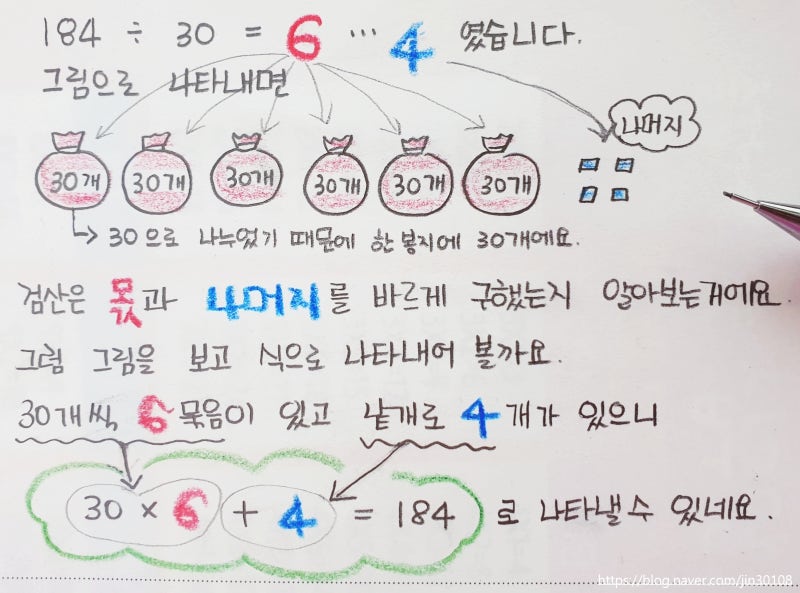 184 ÷ 30 = 6 … 4 였습니다.
그림으로 나타내면
나머지
30개 30개 30개 30개 30개 30개
30으로 나누었기 때문에 한 봉지에 30개에요.
검산은 몫과 나머지를 바르게 구했는지 알아보는거에요.
그럼 그림을 보고 식으로 나타내어 볼까요.
30개씩 6묶음이 있고 낱개로 4개가 있으니
30 × 6 + 4 = 184 로 나타낼 수 있네요.
https://blog.naver.com/jin30108